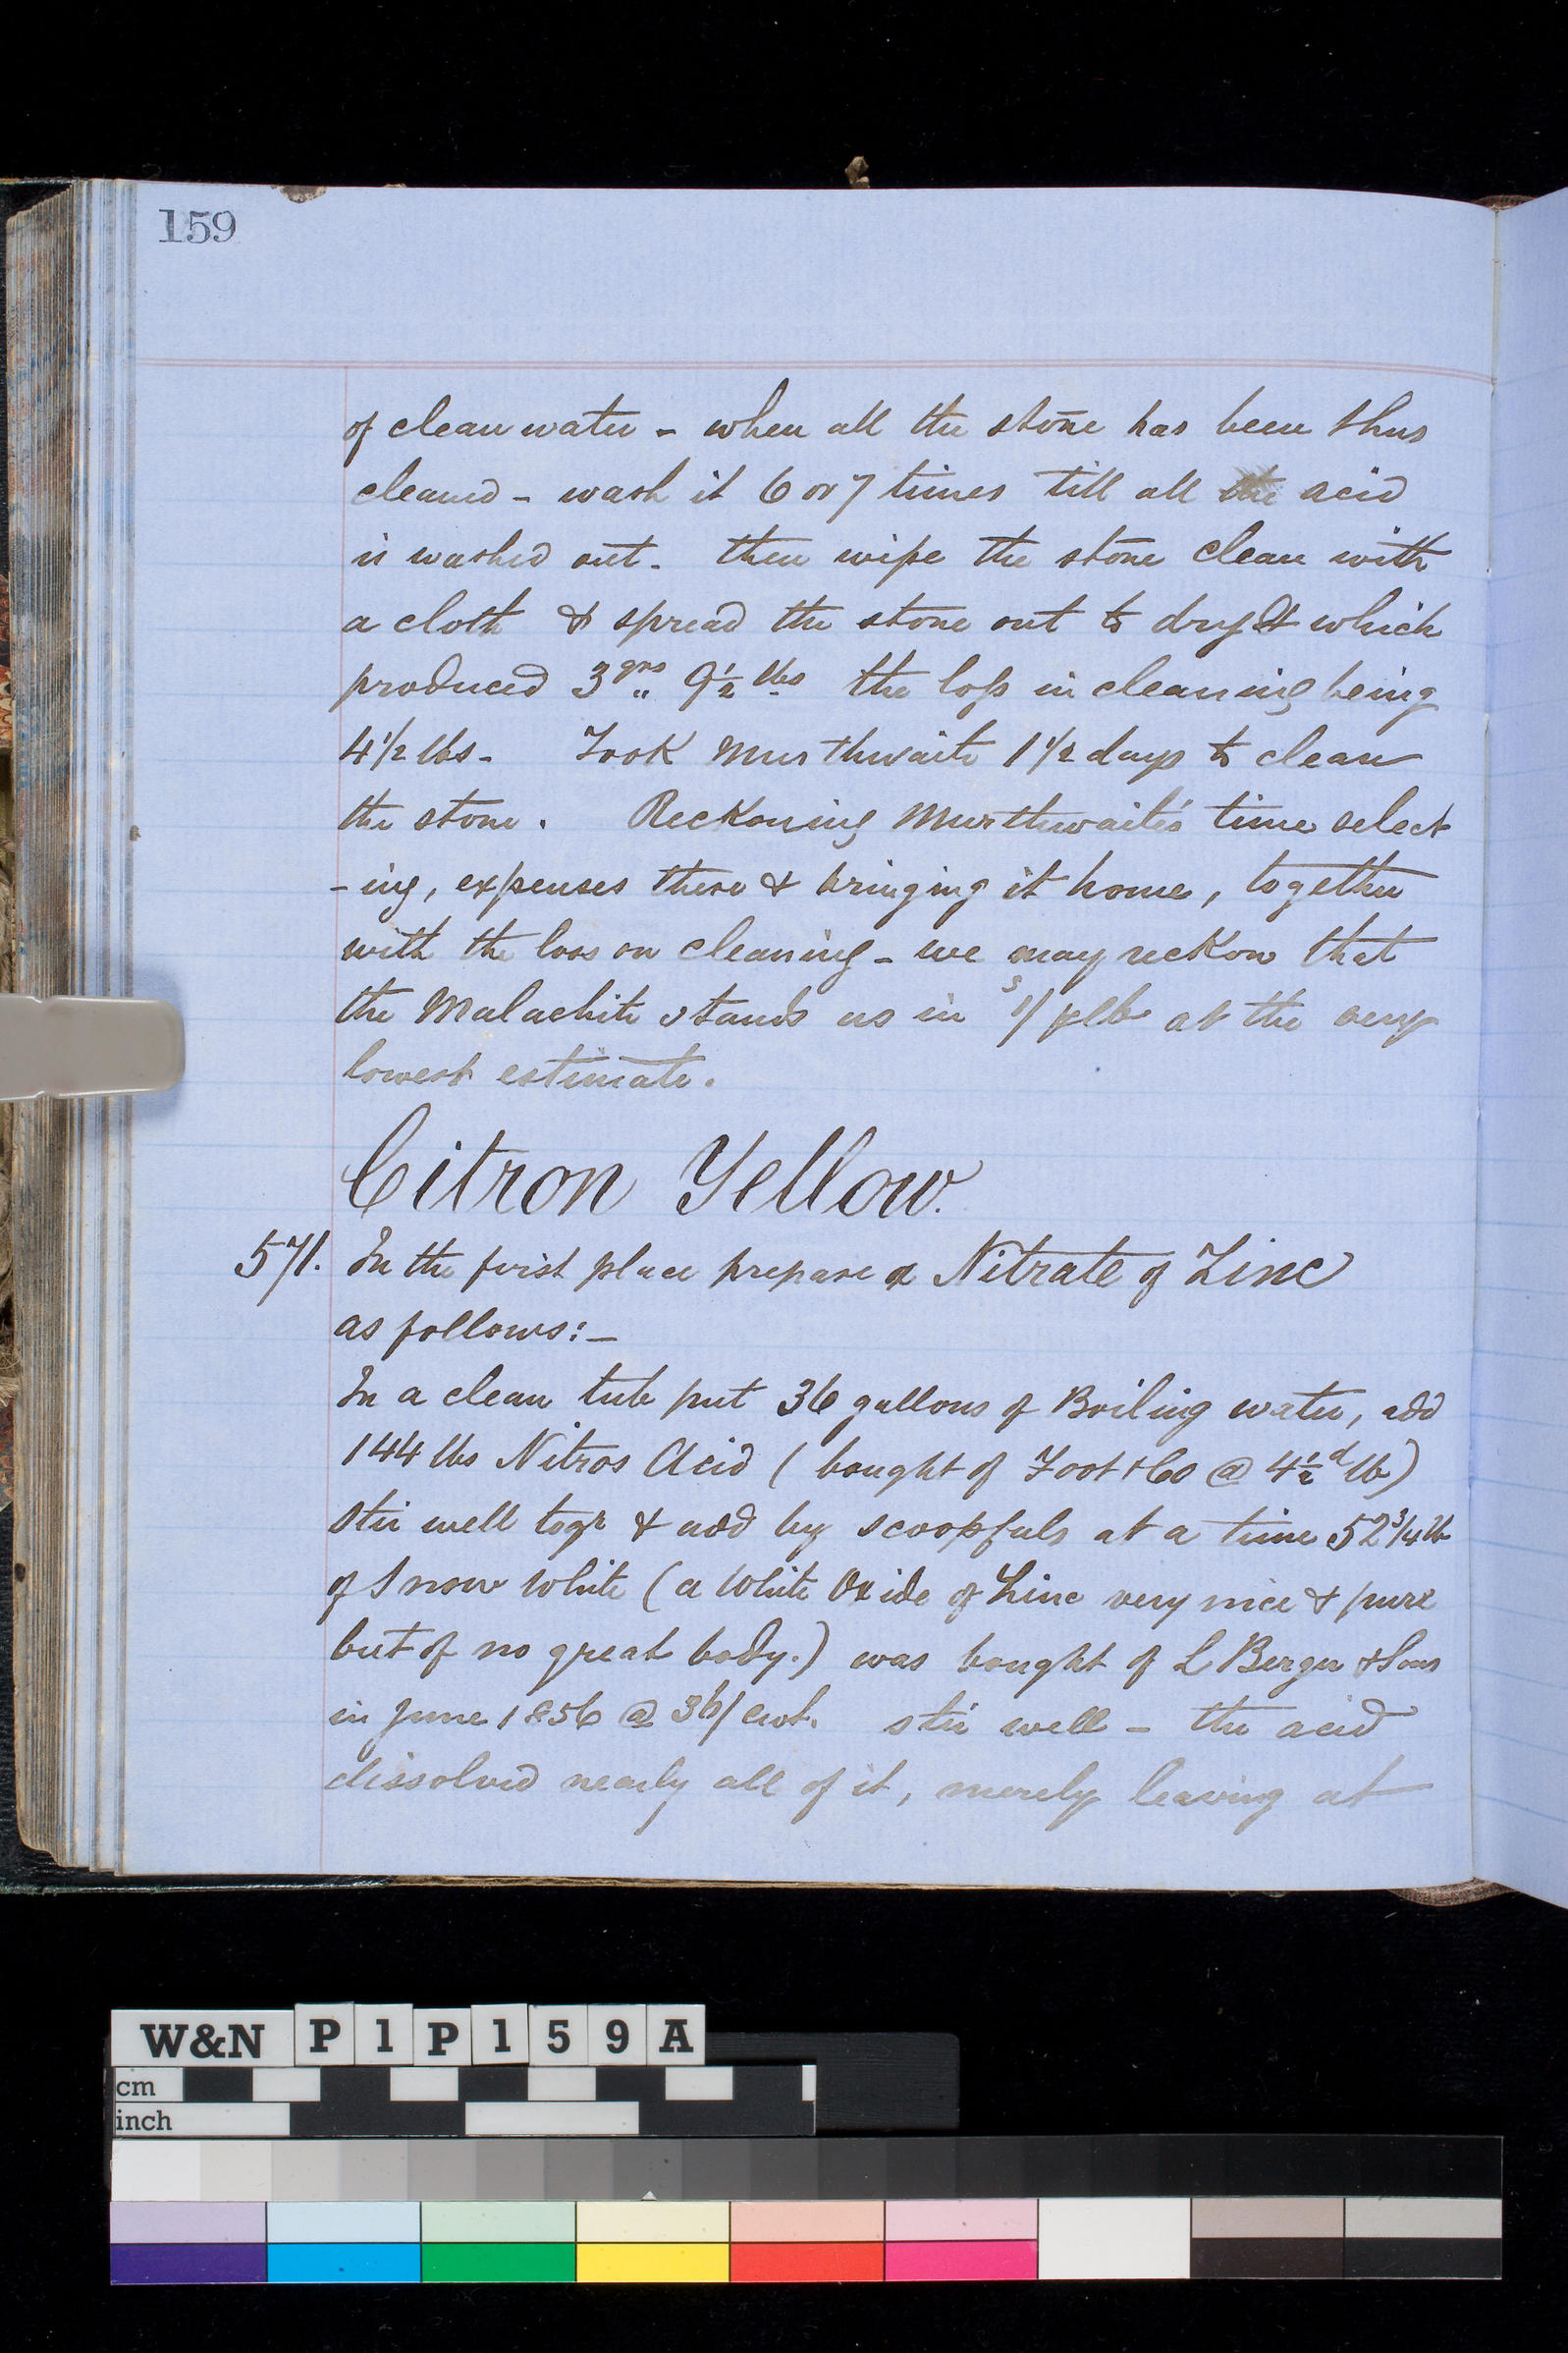 159
of clean water - when all the stone has been thus
cleaned - wash it 6 or 7 times till all the acid
is washed out. then wipe the stone clean with
a cloth & spread the stone out to dry & which
produced 3 qrs „ 9½ lbs the loss in cleaning being
4½ lbs - Took Murthwaite 1½ days to clean
the stone. Reckoning Murthwaite's time select
-ing, expenses there & bringing it home, together
with the loss on cleaning - we may reckon that
the Malachite stands us in lb at the very
lowest estimate.
Citron Yellow.
571. In the first place prepare a Nitrate of Zinc
as follows:-
In a clean tub put 36 gallons of Boiling water, add
144 lbs Nitros Acid (bought of Foot & Co @ 4½d lb)
Stir well togr & add by scoopfuls at a time 52¾ lb
of Snow White (a White Oxide of Zinc very nice & pure
but of no great body.) was bought of L Berger & Sons
in June 1856 @ 36/ cwt. stir well - the acid
dissolved nearly all of it, merely leaving at
W&N P1P159A
cm
inch